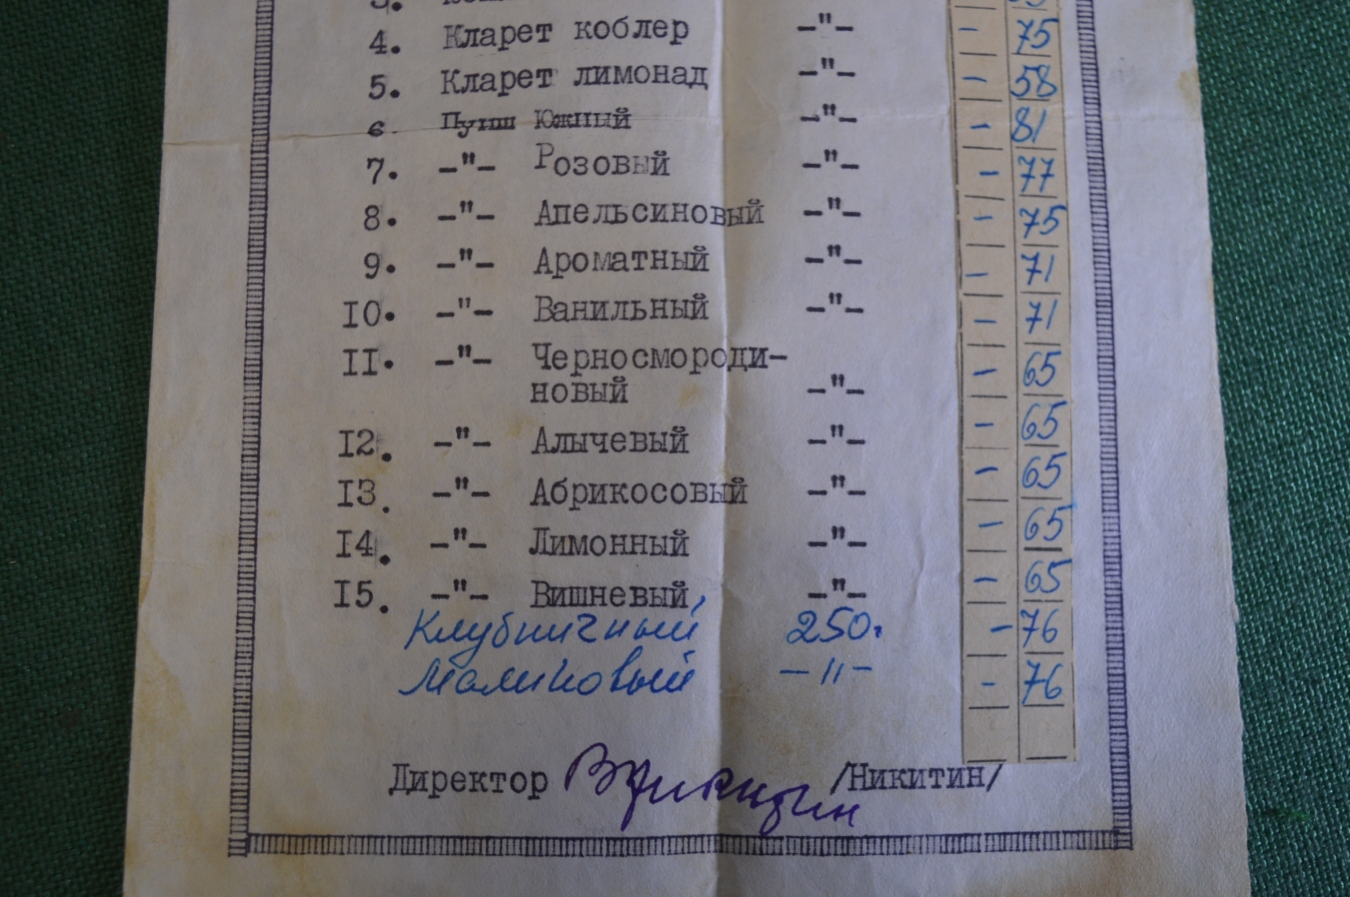 4. Кларет коблер -"- - 75
5. Кларет лимонад -"- - 58
6. Пунш Южный -"- - 81
7. -"- Розовый -"- - 77
8. -"- Апельсиновый -"- - 75
9. -"- Ароматный -"- - 71
10. -"- Ванильный -"- - 71
11. -"- Черносмороди-
новый -"- - 65
12. -"- Алычевый -"- - 65
13. -"- Абрикосовый -"- - 65
14. -"- Лимонный -"- - 65
15. -"- Вишневый -"- - 65
Клубничный 250. - 76
Малиновый -"- - 76
Директор /Никитин/